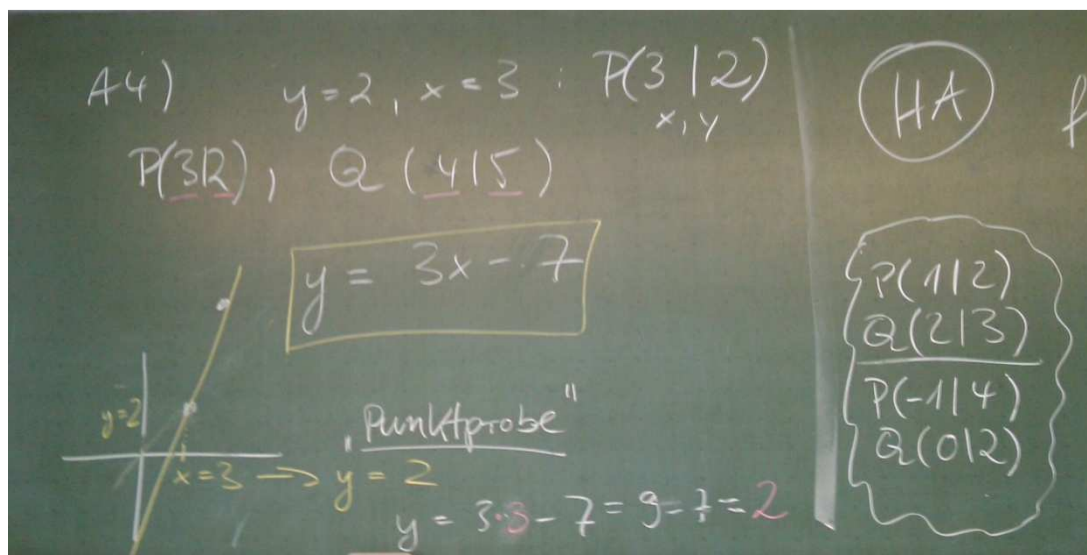 A4) y=2, x=3 : P(3|2)
x, y
P(3|2), Q(4|5)
y = 3x - 7
y=2
x=3 → y = 2
„Punktprobe"
y = 3·3 - 7 = 9 - 7 = 2
HA
P(1|2)
Q(2|3)
P(-1|4)
Q(0|2)